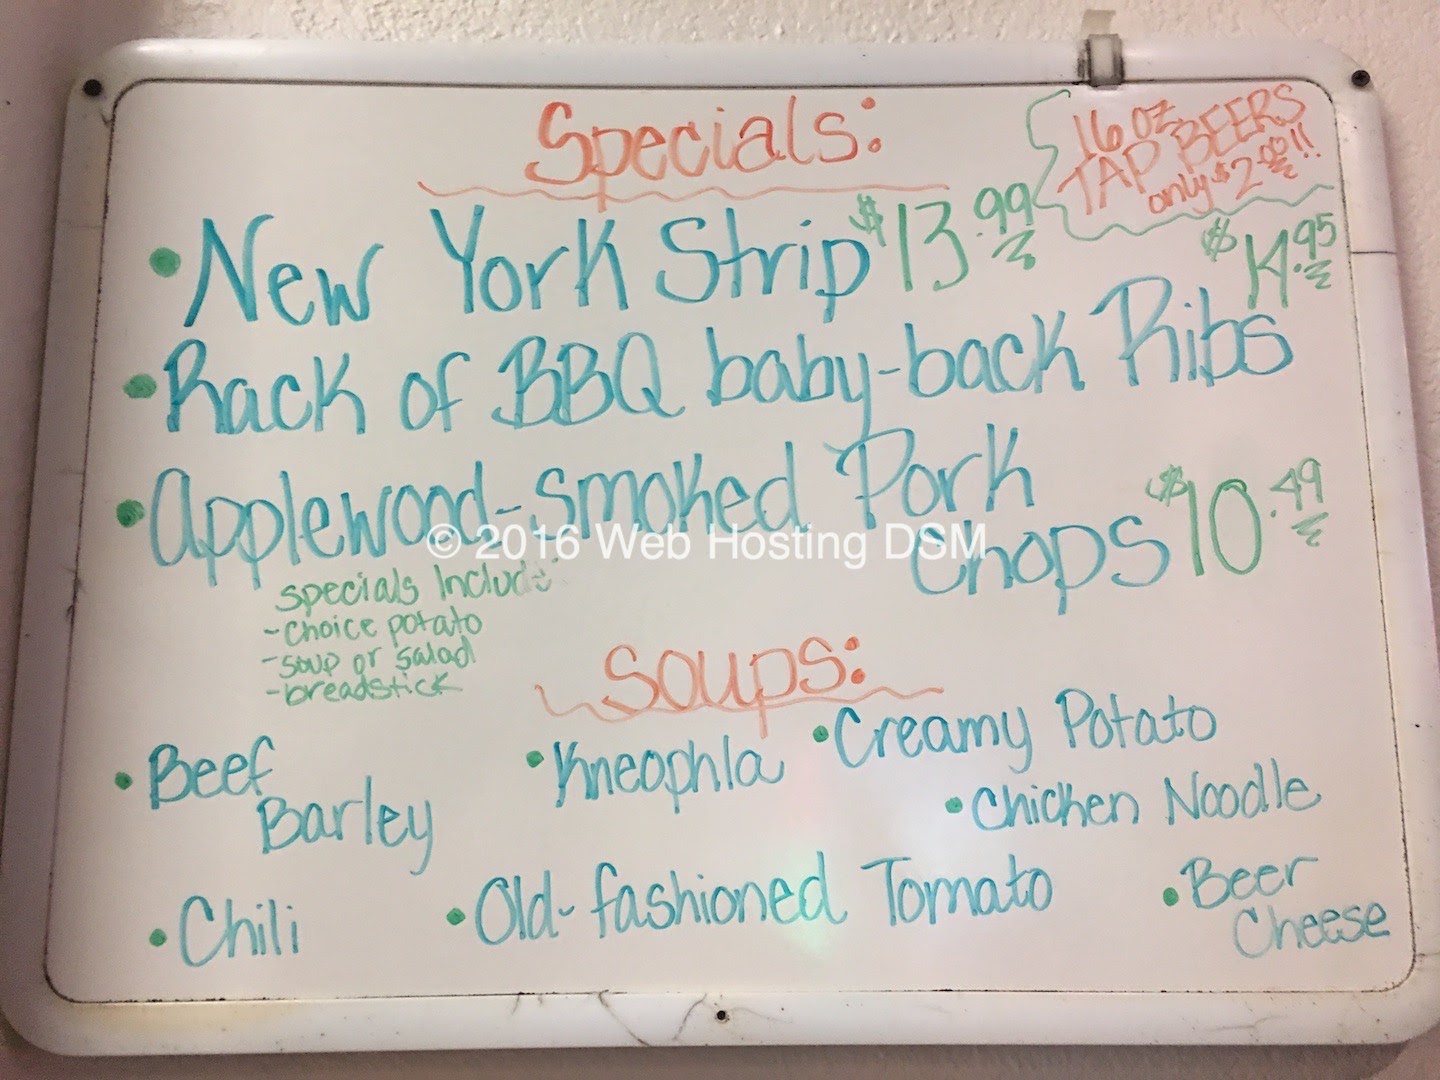 Specials:
16 oz
TAP BEERS
only $2.00!!
• New York Strip $13.99
$14.95
• Rack of BBQ baby-back Ribs
• Applewood-smoked Pork
Chops $10.49
© 2016 Web Hosting DSM
specials Include:
- choice potato
- soup or salad
- breadstick
Soups:
• Beef
Barley
• Kneophla
• Creamy Potato
• Chicken Noodle
• Chili
• Old-fashioned Tomato
• Beer
Cheese